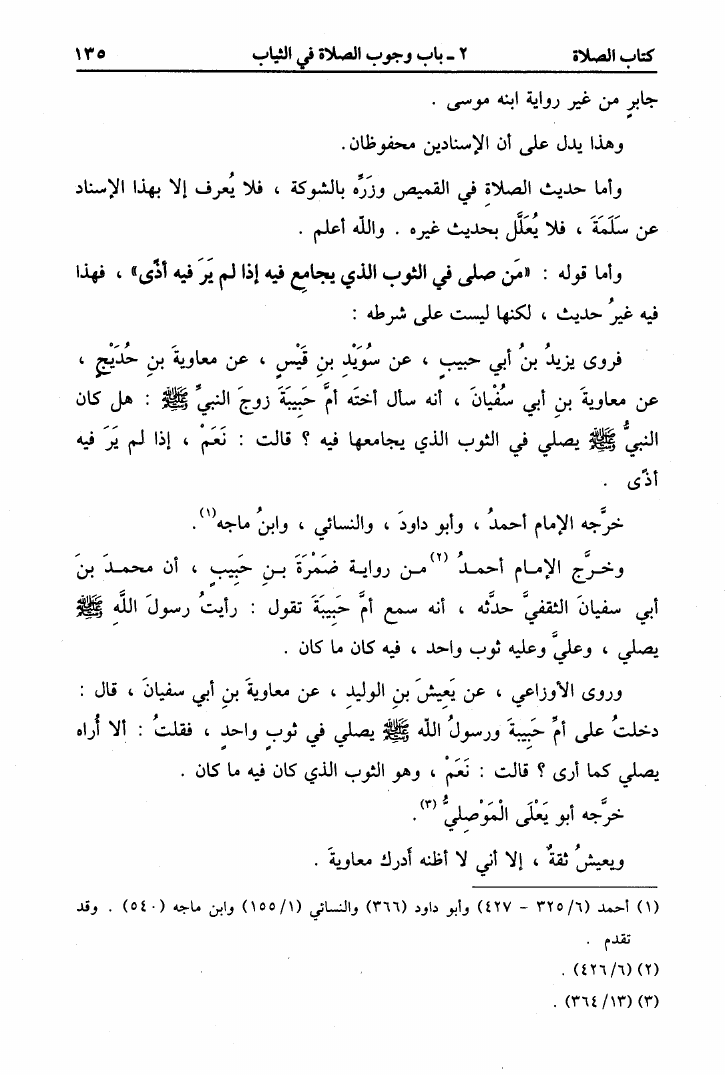 كتاب الصلاة ٢ ـ باب وجوب الصلاة في الثياب ١٣٥
جابرٍ من غير رواية ابنه موسى .
وهذا يدل على أن الإسنادين محفوظان.
وأما حديث الصلاةِ في القميص وزَرِّه بالشوكة ، فلا يُعرف إلا بهذا الإسناد
عن سَلَمَةَ ، فلا يُعَلَّل بحديث غيره . واللّه أعلم .
وأما قوله : «مَن صلى في الثوب الذي يجامع فيه إذا لم يَرَ فيه أذًى» ، فهذا
فيه غيرُ حديث ، لكنها ليست على شرطه :
فروى يزيدُ بنُ أبي حبيبٍ ، عن سُوَيْدِ بنِ قَيْسٍ ، عن معاويةَ بنِ حُدَيْجٍ ،
عن معاويةَ بنِ أبي سُفْيانَ ، أنه سأل أختَه أمَّ حَبِيبَةَ زوجَ النبيِّ ﷺ : هل كان
النبيُّ ﷺ يصلي في الثوب الذي يجامعها فيه ؟ قالت : نَعَمْ ، إذا لم يَرَ فيه
أذًى .
خرَّجه الإمام أحمدُ ، وأبو داودَ ، والنسائي ، وابنُ ماجه(١).
وخـرَّج الإمـام أحمـدُ (٢)مـن روايـة ضَمْرَةَ بـنِ حَبِيبٍ ، أن محمـدَ بنَ
أبي سفيانَ الثقفيَّ حدَّثه ، أنه سمع أمَّ حَبِيبَةَ تقول : رأيتُ رسولَ اللَّهِ ﷺ
يصلي ، وعليَّ وعليه ثوب واحد ، فيه كان ما كان .
وروى الأوزاعي ، عن يَعِيشَ بنِ الوليدِ ، عن معاويةَ بنِ أبي سفيانَ ، قال :
دخلتُ على أمِّ حَبِيبةَ ورسولُ اللّه ﷺ يصلي في ثوبٍ واحدٍ ، فقلتُ : ألا أُراه
يصلي كما أرى ؟ قالت : نَعَمْ ، وهو الثوب الذي كان فيه ما كان .
خرَّجه أبو يَعْلَى الْمَوْصليُّ (٣).
ويعيشُ ثقةٌ ، إلا أني لا أظنه أدرك معاويةَ .
(١) أحمد (٦/ ٣٢٥ - ٤٢٧) وأبو داود (٣٦٦) والنسائي (١/ ١٥٥) وابن ماجه (٥٤٠) . وقد
تقدم .
(٢) (٦/ ٤٢٦) .
(٣) (١٣/ ٣٦٤) .